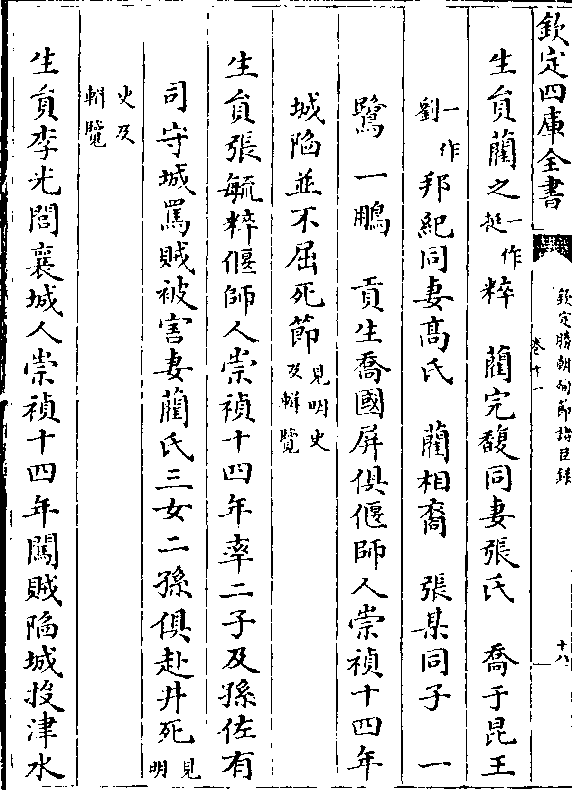 欽定四庫全書
欽定勝朝殉節諸臣錄 卷十一 十八
生員藺之一作挺粹　藺完馥同妻張氏　喬于昆王
一作劉邦紀同妻高氏　藺相裔　張某同子一
鷺一鵬　貢生喬國屏俱偃師人崇禎十四年
城陷並不屈死節見明史及輯覽
生員張毓粹偃師人崇禎十四年率二子及孫佐有
司守城罵賊被害妻藺氏三女二孫俱赴井死見明
史及輯覽
生員李光閭襄城人崇禎十四年闖賊陷城投津水